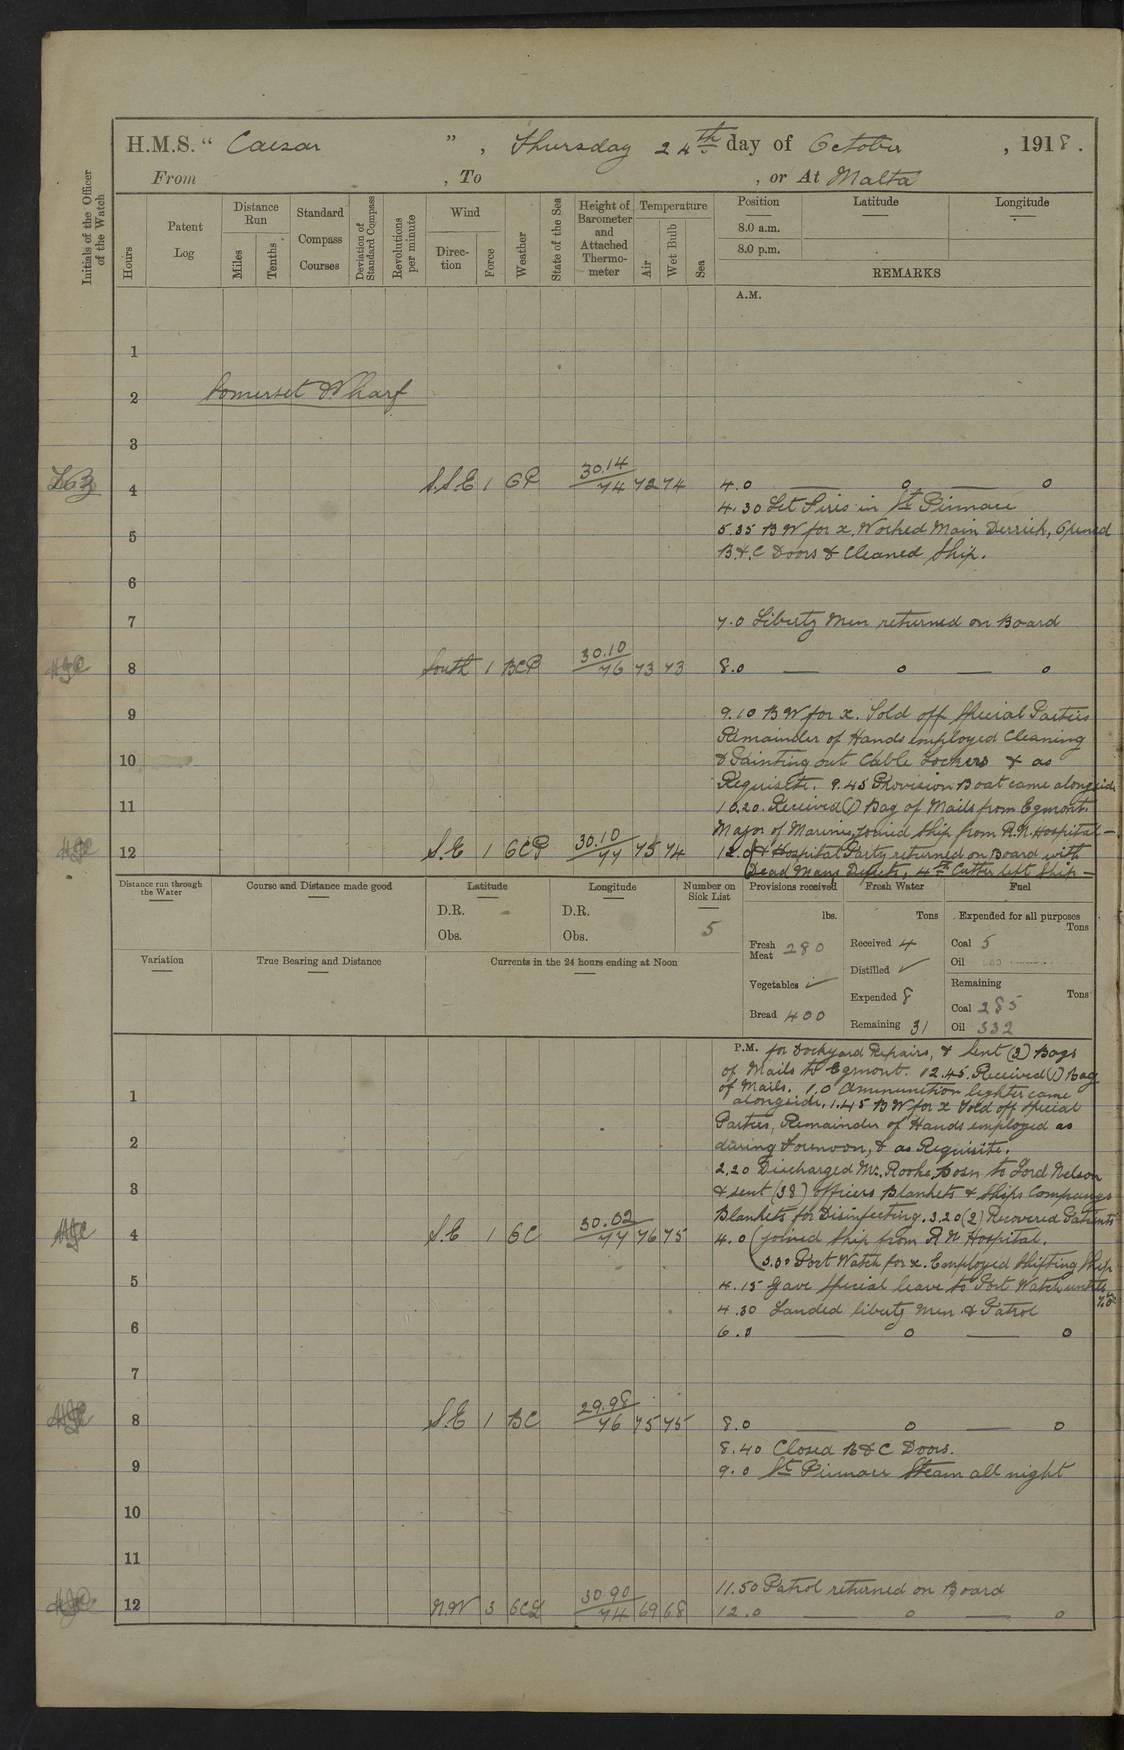 H.M.S. " Caesar ", Thursday 24th day of October, 1918.
From , To , or At Malta
Initials of the Officer of the Watch
Hours
Patent Log
Distance Run
Miles
Tenths
Standard Compass Courses
Deviation of Standard Compass
Revolutions per minute
Wind
Direction
Force
Weather
State of the Sea
Height of Barometer and Attached Thermometer
Temperature
Air
Wet Bulb
Sea
Position Latitude Longitude
8.0 a.m.
8.0 p.m.
REMARKS
A.M.
1
2 Somerset Wharf
3
4 S.S.E 1 GP 30.14 74 72 74 4.0 — 0 — 0
4.30 Let Fires in St Pinnace
5 5.35 BW for x, Worked Main Derrick, Opened
B.&.C Doors & Cleaned Ship.
6
7 7.0 Liberty Men returned on Board
8 South 1 BCP 30.10 76 73 73 8.0 — 0 — 0
9 9.10 BW for x. Told off Special Parties
Remainder of Hands employed Cleaning
10 & Painting out Cable Lockers & as
Requisite. 9.45 Provision Boat came alongside
11 10.20. Received (1) Bag of Mails from Egmont.
Major of Marines joined Ship from R.N. Hospital —
12 S.E 1 GCP 30.10 77 75 74 12.0 & Hospital Party returned on Board with
Dead Mans Effects, 4th Cutter left Ship —
Distance run through the Water
Course and Distance made good
Latitude
D.R.
Obs.
Longitude
D.R.
Obs.
Number on Sick List
5
Provisions received
lbs.
Fresh Meat 280
Vegetables ✓
Bread 400
Fresh Water
Tons
Received 4
Distilled ✓
Expended 8
Remaining 31
Fuel
Expended for all purposes
Tons
Coal 5
Oil
Remaining
Tons
Coal 285
Oil 332
Variation
True Bearing and Distance
Currents in the 24 hours ending at Noon
P.M. for Dockyard Repairs, & Sent (3) Bags
of Mails to Egmont. 12.45. Received (1) Bag
of Mails. 1.0 Ammunition lighter came
1 alongside. 1.45 BW for x Told off Special
Parties, Remainder of Hands employed as
2 during Forenoon, & as Requisite.
2.20 Discharged Mr. Rooke, Bosn to Lord Nelson
3 & sent (38) Officers Blankets & Ships Companys
Blankets for Disinfecting. 3.20 (2) Recovered Patients
4 S.E 1 GC 30.02 77 76 75 4.0 joined Ship from R N Hospital.
3.30 Port Watch for x. Employed Shifting Ship
5 4.15 Gave Special leave to Port Watch until 7.0
4.30 Landed liberty Men & Patrol
6 6.0 — 0 — 0
7
8 S.E 1 BC 29.98 76 75 75 8.0 — 0 — 0
8.40 Closed B&C Doors.
9 9.0 St Pinnace Steam all night
10
11
11.50 Patrol returned on Board
12 N.W 3 30.90 74 69 68 12.0 — 0 — 0